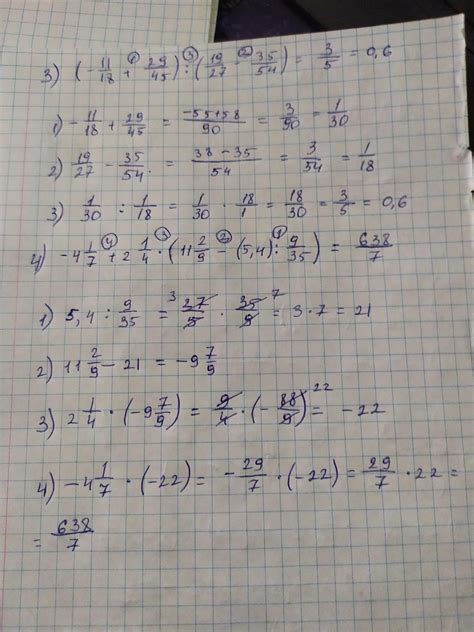 3) (-11/18 + 29/45) : (19/27 - 35/54) = 3/5 = 0,6
1) -11/18 + 29/45 = -55+58/90 = 3/90 = 1/30
2) 19/27 - 35/54 = 38-35/54 = 3/54 = 1/18
3) 1/30 : 1/18 = 1/30 · 18/1 = 18/30 = 3/5 = 0,6
4) -4 1/7 + 2 1/4 · (11 2/9 - (5,4) : 9/35) = 638/7
1) 5,4 : 9/35 = 27/5 · 35/9 = 3·7 = 21
2) 11 2/9 - 21 = -9 7/9
3) 2 1/4 · (-9 7/9) = 9/4 · (-88/9) = -22
4) -4 1/7 · (-22) = -29/7 · (-22) = 29/7 · 22 =
= 638/7